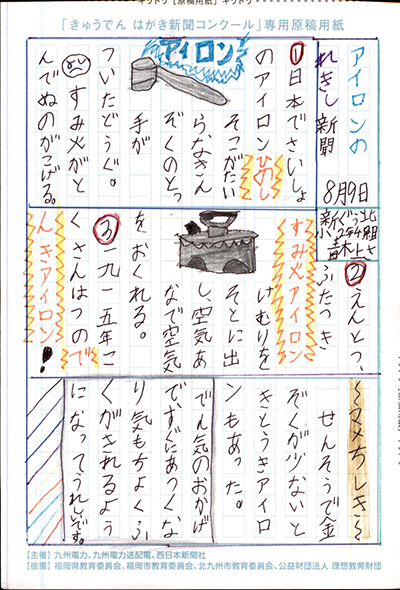 キリトリ【原稿用紙】キリトリ
「きゅうでん はがき新聞コンクール」専用原稿用紙
アイロンの
れきし新聞
8月9日
アイロン
①日本でさいしょ
のアイロンひのし
そこがたい
らなきん
ぞくのとっ
手が
ついたどうぐ。
すみ火がと
んでぬのがこげる。
②えんとつ、
ふたつき
すみ火アイロン
けむりを
そとに出
し、空気あ
なで空気
をおくれる。
③一九一五年こ
くさんはつので
んきアイロン!
~マメちしき~
せんそうで金
ぞくが少ないと
きとうきアイロ
ンもあった。
でん気のおかげ
で、すぐにあつくな
り気もちよくふ
くがきれるよう
になってうれしいです。
【主催】九州電力、九州電力送配電、西日本新聞社
【後援】福岡県教育委員会、福岡市教育委員会、北九州市教育委員会、公益財団法人 理想教育財団